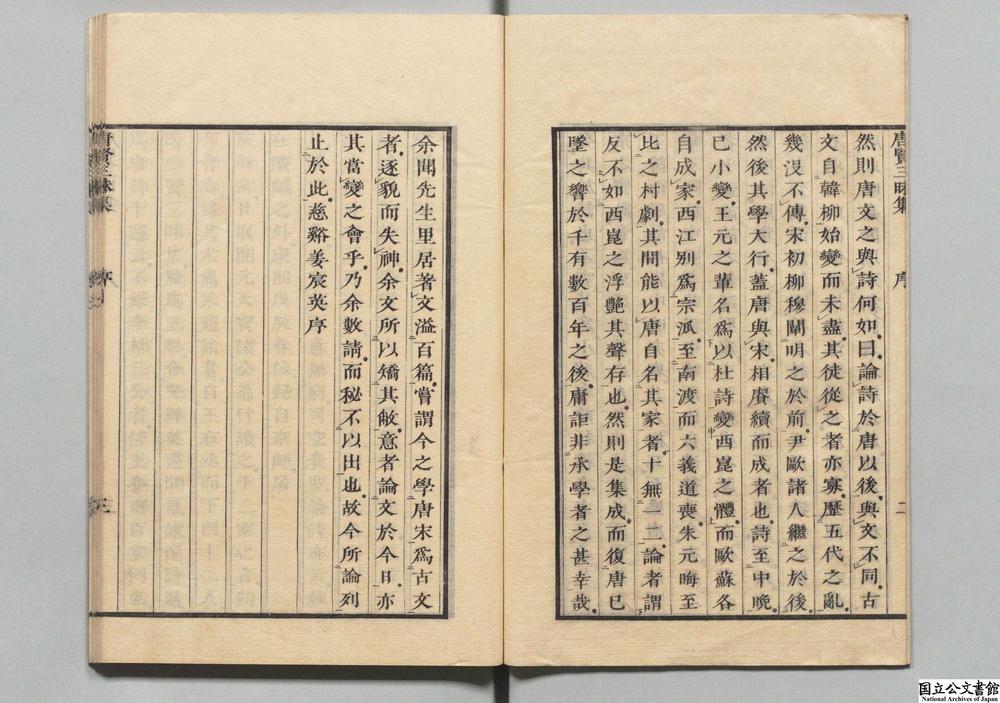 唐賢三昧集 序 二
然則唐文之與詩何如曰論詩於唐以後與文不同古
文自韓柳始變而未盡其徒從之者亦寡歷五代之亂
幾沒不傳宋初柳穆闡明之於前尹歐諸人繼之於後
然後其學大行蓋唐與宋相賡續而成者也詩至中晚
已小變王元之輩名爲以杜詩變西崑之體而歐蘇各
自成家西江别爲宗派至南渡而六義道喪朱元晦至
比之村劇其間能以唐自名其家者十無一二也論者謂
反不如西崑之浮艷其聲存也然則是集成而復唐已
墜之響於千有數百年之後庸詎非承學者之甚幸哉
余聞先生里居著文溢百篇嘗謂今之學唐宋爲古文
者逐貌而失神余文所以矯其敝意者論文於今日亦
其當變之會乎乃余數請而秘不以出也故今所論列
止於此慈谿姜宸英序
唐賢三昧集 序 三
国立公文書館
National Archives of Japan